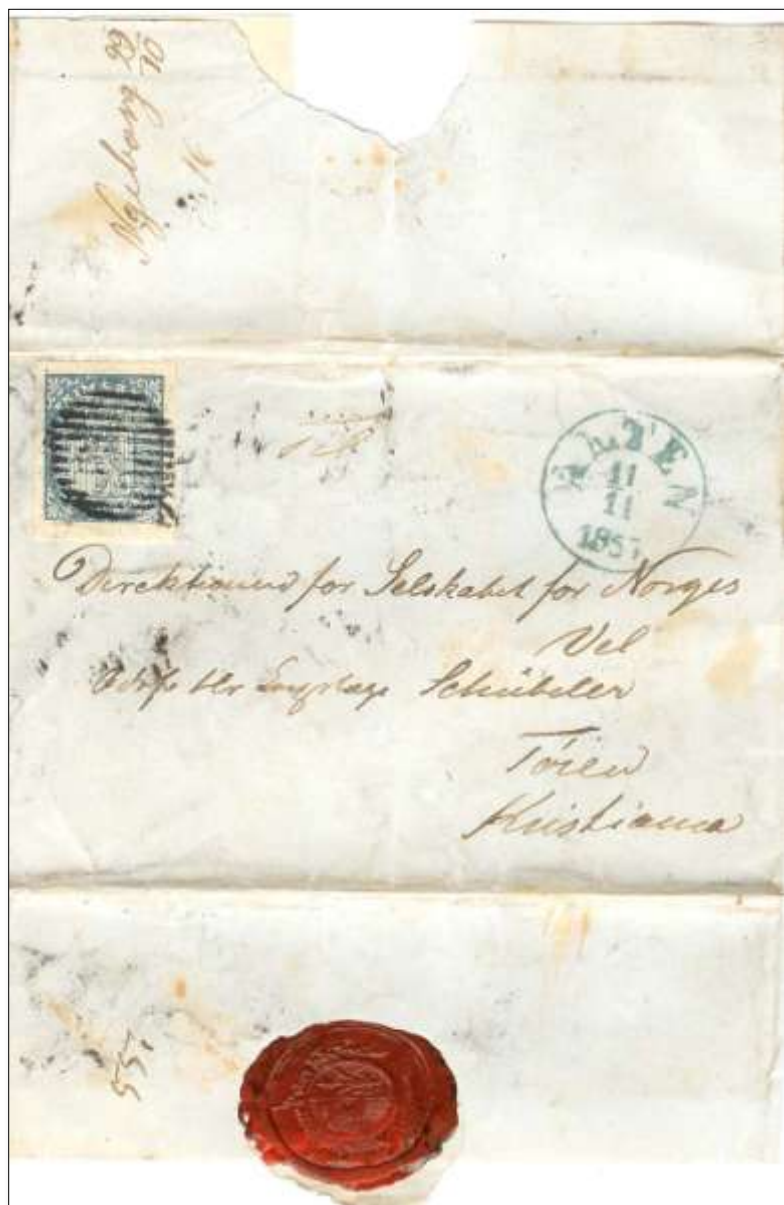 29
10
16
TEN
11
11
185
Direktionen for Selskabet for Norges
Vel
Schübeler
Töien
Kristiania
55,